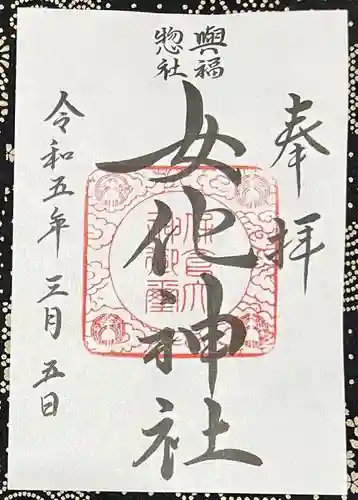 奉拝
興福
惣社
女化神社
令和五年 三月 五日